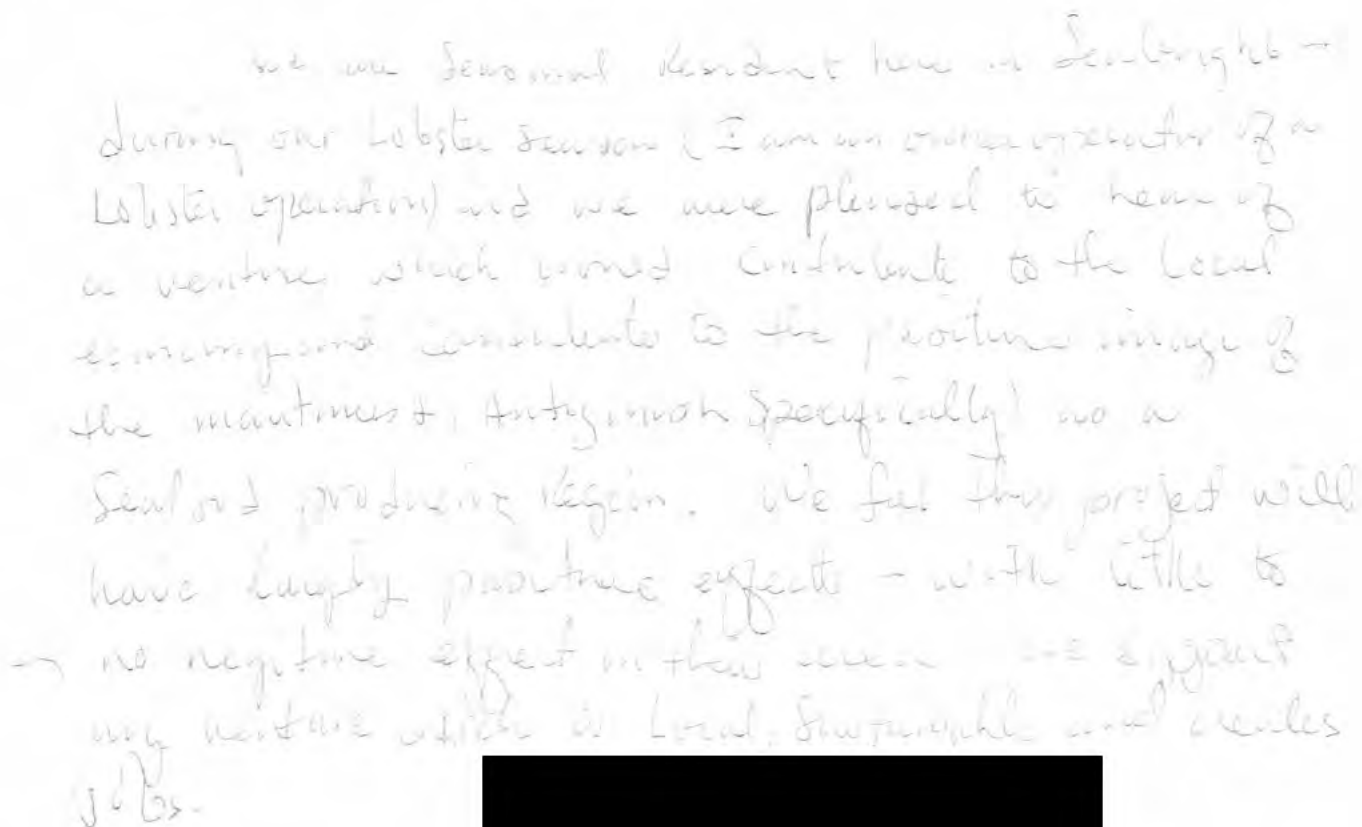 we are Seasonal Resident here in Sealbright -
during our Lobster Season (I am an owner operator of a
Lobster operation) and we were pleased to hear of
a venture which would contribute to the local
economy and contribute to the positive image of
the maritimes & Antigonish Specifically) as a
Seafood producing Region. We feel this project will
have largely positive effects - with little to
→ no negitive effect in this area we support
any venture which is Local, Sustainable and creates
jobs.